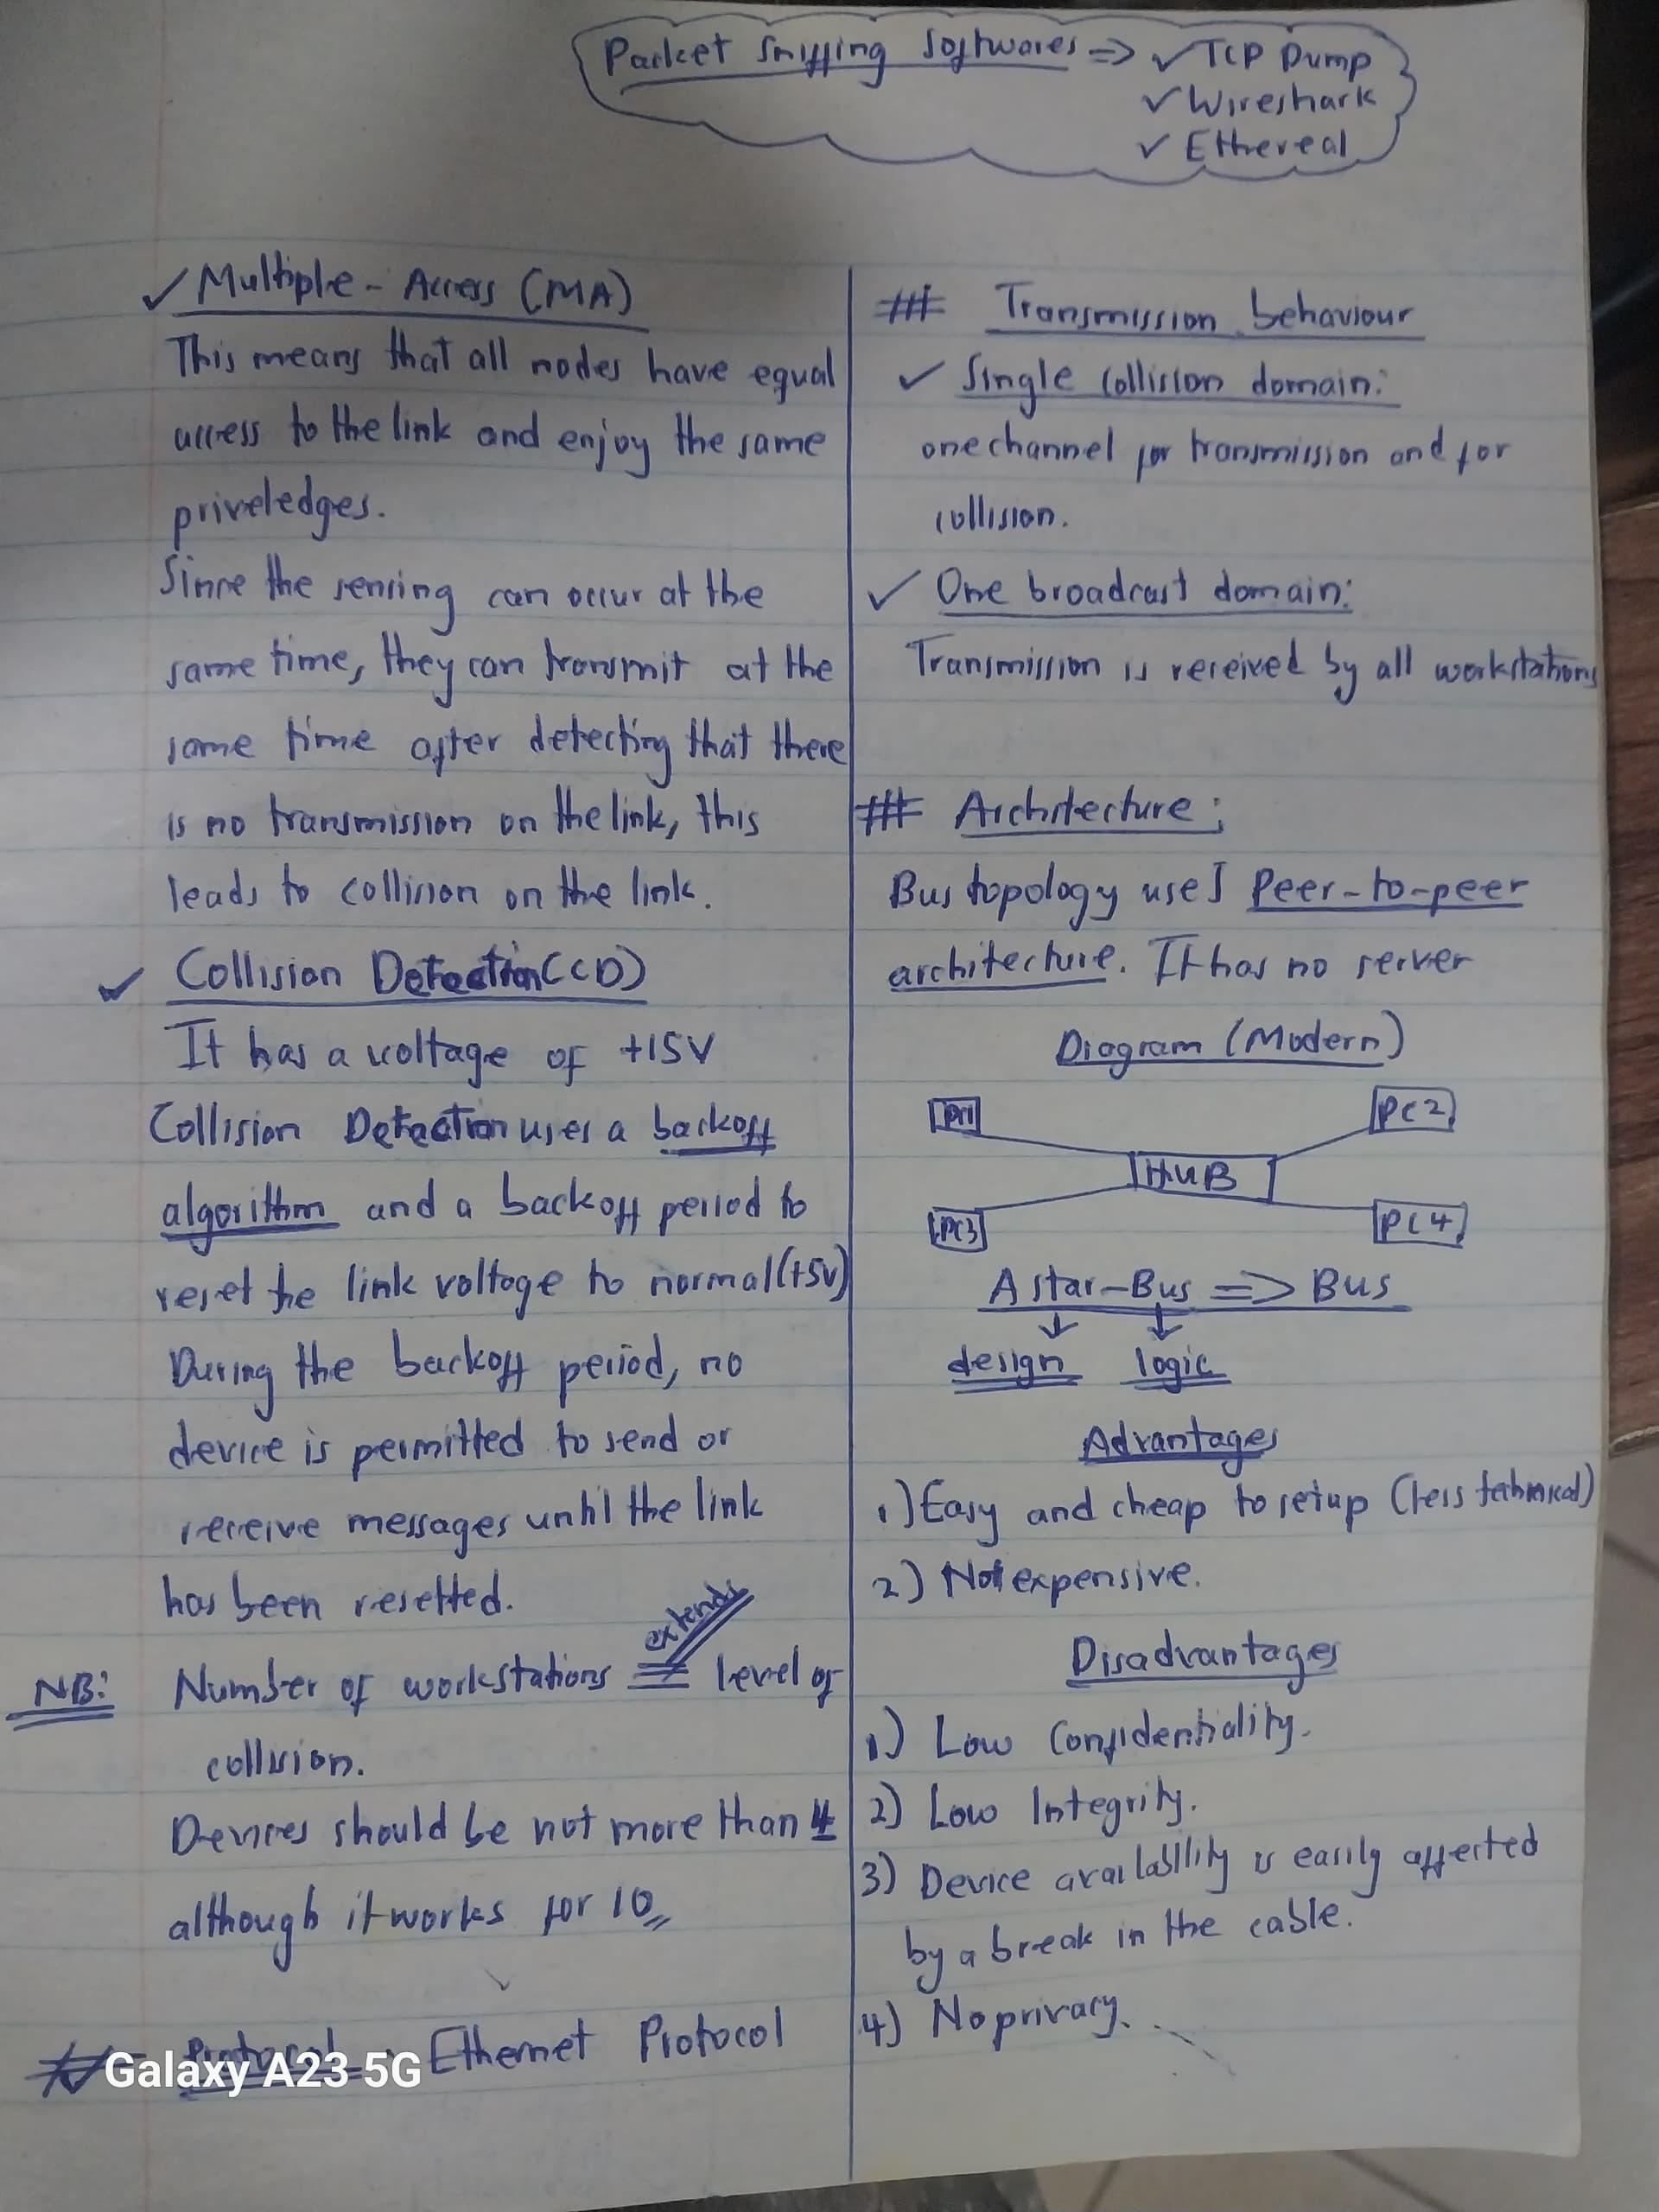 Packet Sniffing Softwares => ✓ TCP Dump
✓ Wireshark
✓ Ethereal
✓ Multiple - Access (MA)
This means that all nodes have equal
access to the link and enjoy the same
priveledges.
Since the sensing can occur at the
same time, they can transmit at the
same time after detecting that there
is no transmission on the link, this
leads to collision on the link.
✓ Collision Detection (CD)
It has a voltage of +15V
Collision Detection uses a backoff
algorithm and a backoff period to
reset the link voltage to normal (+5v)
During the backoff period, no
device is permitted to send or
receive messages until the link
has been resetted.
extends
NB: Number of workstations = level of
collision.
Devices should be not more than 4
although it works for 10
Protocol: Ethernet Protocol
Galaxy A23 5G
# Transmission behaviour
✓ Single collision domain:
one channel for transmission and for
collision.
✓ One broadcast domain:
Transmission is received by all workstations
# Architecture:
Bus topology uses Peer-to-peer
architecture. It has no server
Diagram (Modern)
PC1 PC2
HUB
PC3 PC4
A star-Bus => Bus
design logic
Advantages
1) Easy and cheap to setup (less technical)
2) Not expensive.
Disadvantages
1) Low Confidentiality.
2) Low Integrity.
3) Device availability is easily affected
by a break in the cable.
4) No privacy.